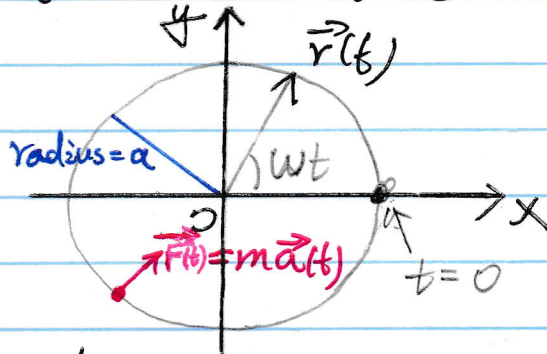 y
r⃗(t)
radius = a
ωt
O
x
F⃗(t) = ma⃗(t)
t = 0